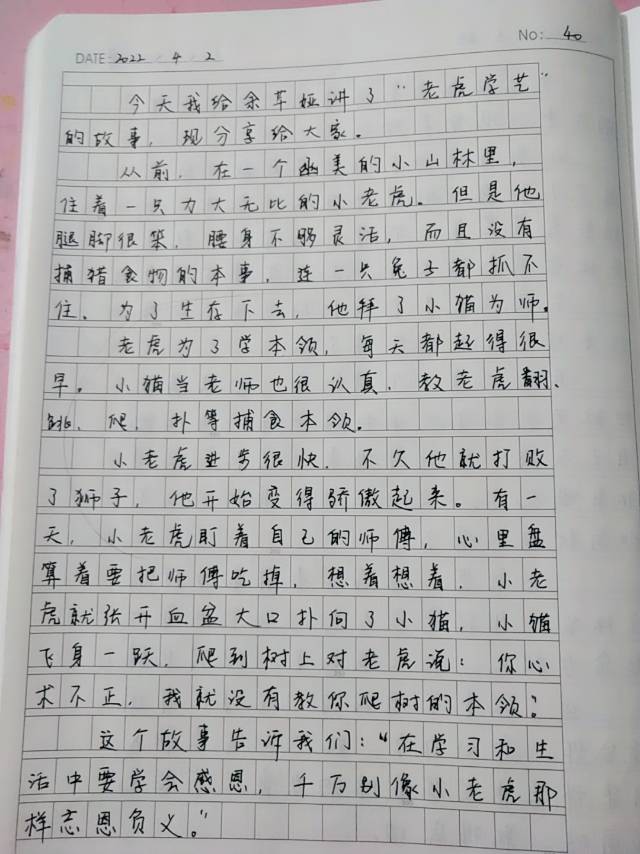 DATE: 2022 / 4 / 2 NO: 40
今天我给余草娅讲了“老虎学艺”
的故事，现分享给大家。
从前，在一个幽美的小山林里，
住着一只力大无比的小老虎。但是他
腿脚很笨，腰身不够灵活，而且没有
捕猎食物的本事，连一只兔子都抓不
住。为了生存下去，他拜了小猫为师。
老虎为了学本领，每天都起得很
早。小猫当老师也很认真，教老虎翻、
跳、爬、扑等捕食本领。
小老虎进步很快，不久他就打败
了狮子，他开始变得骄傲起来。有一
天，小老虎盯着自己的师傅，心里盘
算着要把师傅吃掉，想着想着，小老
虎就张开血盆大口扑向了小猫，小猫
飞身一跃，爬到树上对老虎说：你心
术不正，我就没有教你爬树的本领！
这个故事告诉我们：“在学习和生
活中要学会感恩，千万别像小老虎那
样忘恩负义。”